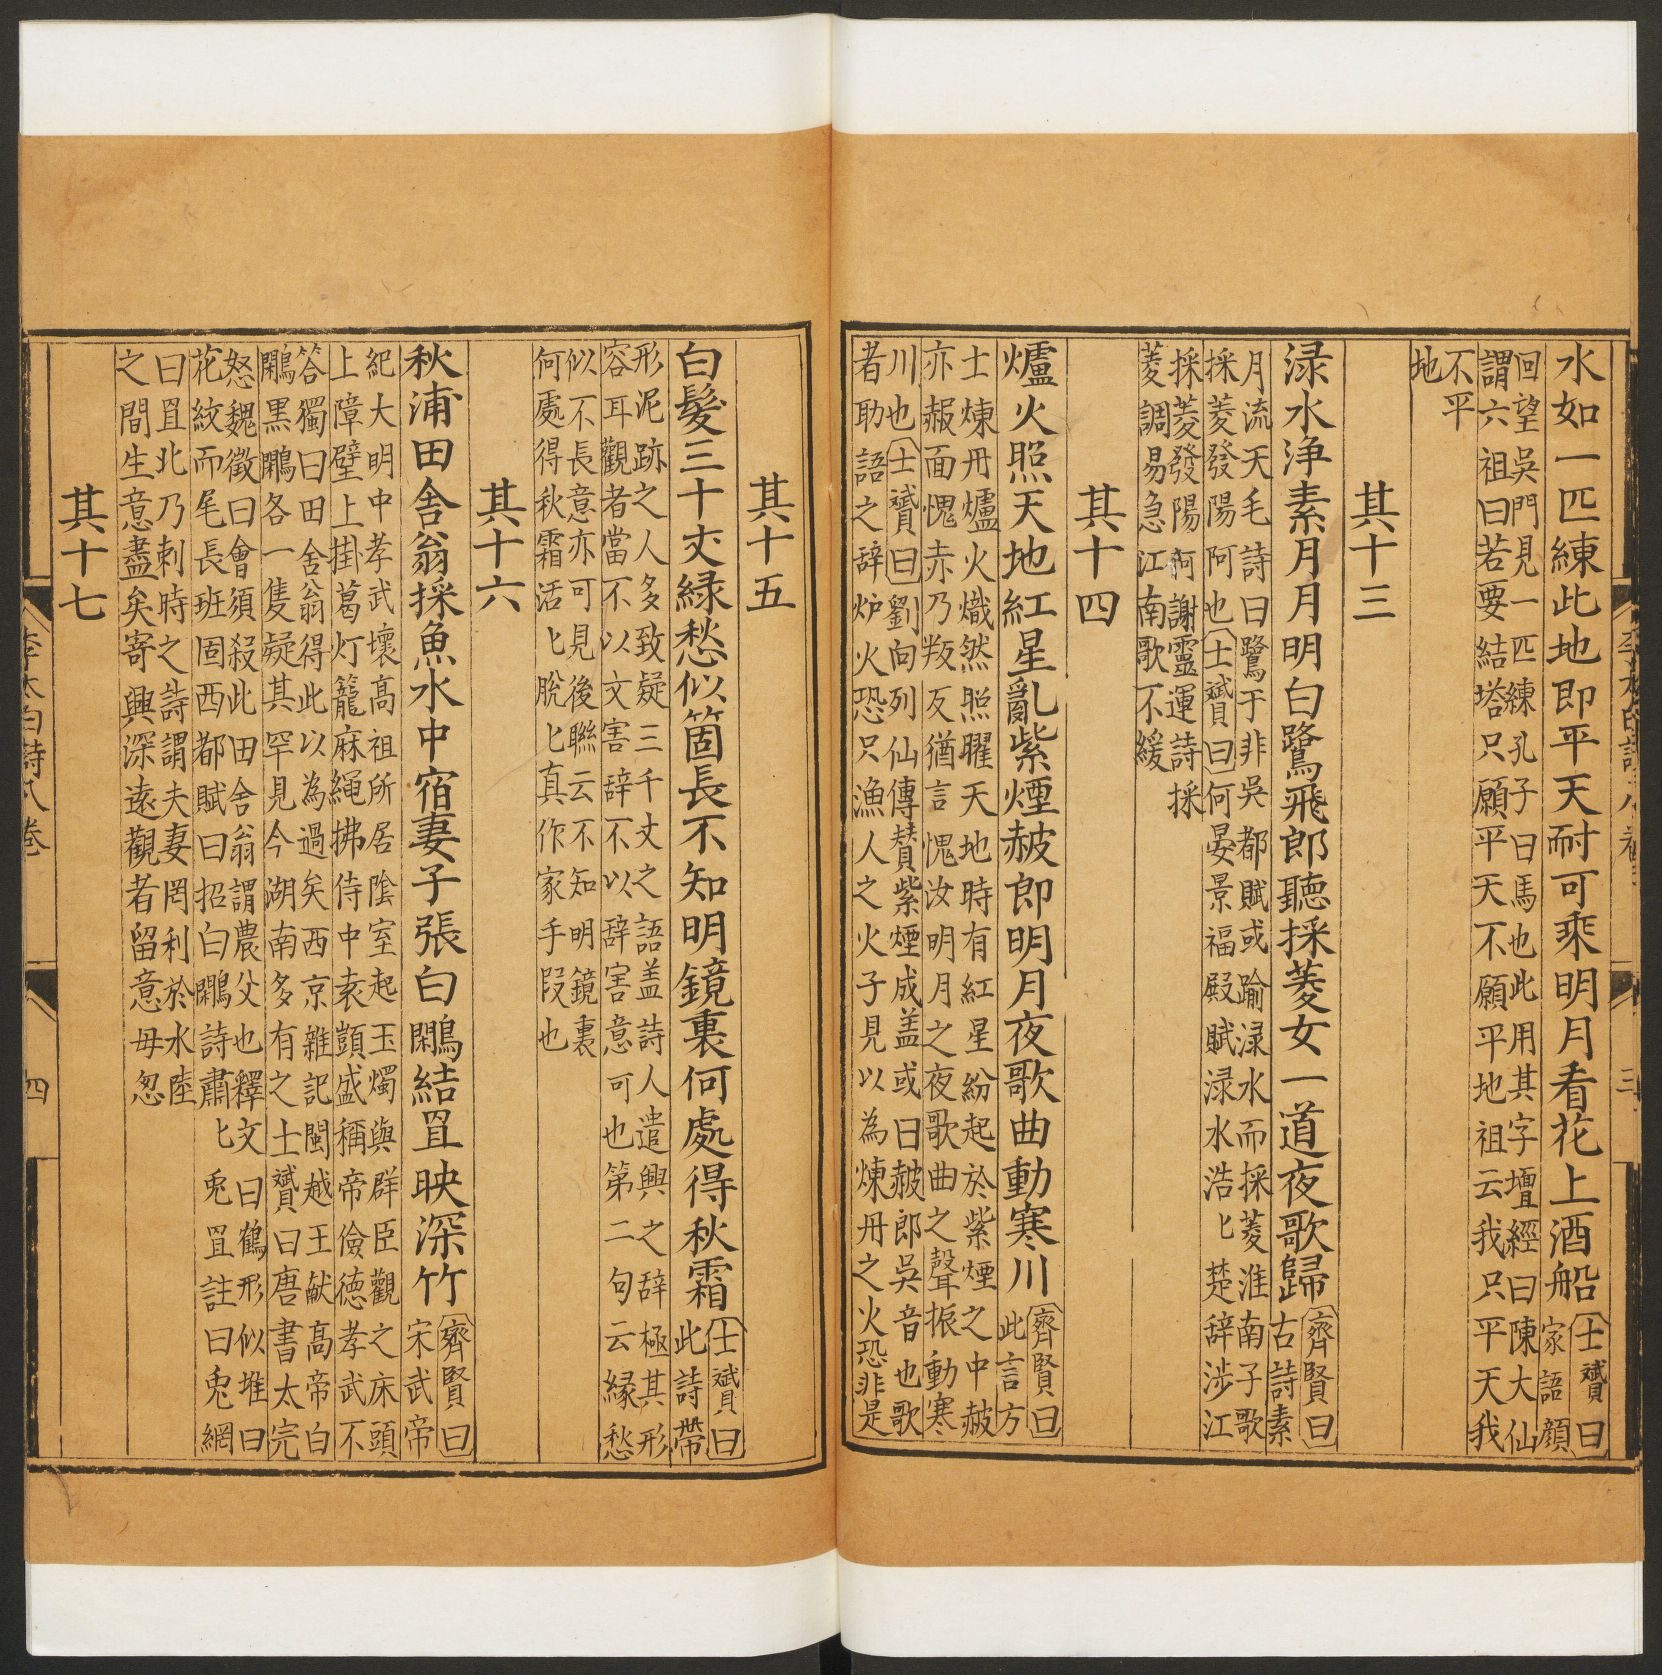 水如一匹練此地即平天耐可乘明月看花上酒船
士贇曰家語顏
回望吳門見一匹練孔子曰馬也此用其字壇經曰陳大仙
謂六祖曰若要結塔只願平天不願平地祖云我只平天我
不平
地
其十三
渌水浄素月月明白鷺飛郎聽採菱女一道夜歌歸
齊賢曰古詩素
月流天毛詩曰鷺于非吳都賦或踰渌水而採菱淮南子歌
採菱發陽阿也士贇曰何晏景福殿賦渌水浩匕楚辞涉江
採菱發陽阿謝靈運詩採
菱調易急江南歌不緩
其十四
爐火照天地紅星亂紫煙赧郎明月夜歌曲動寒川
齊賢曰此言方
士煉丹爐火熾然照曜天地時有紅星紛起於紫煙之中赧
亦赧面愧赤乃叛反猶言愧汝明月之夜歌曲之聲振動寒
川也士贇曰劉向列仙傳賛紫煙成盖或曰赧郎吳音也歌
者助語之辞炉火恐只漁人之火子見以為煉丹之火恐非是
其十五
白髮三千丈緑愁似箇長不知明鏡裏何處得秋霜
士贇曰此詩帶
形泥跡之人多致疑三千丈之語盖詩人遣興之辞極其形
容耳觀者當不以文害辞不以辞害意可也第二句云緑愁
似不長意亦可見後聯云不知明鏡裏
何處得秋霜活匕脫匕真作家手叚也
其十六
秋浦田舎翁採魚水中宿妻子張白鷴結罝映深竹
齊賢曰宋武帝
紀大明中孝武壞高祖所居隂室起玉燭與群臣觀之床頭
上障壁上掛葛灯籠麻繩拂侍中袁顗盛稱帝儉德孝武不
荅獨曰田舍翁得此以為過矣西京雜記閩越王献高帝白
鷴黒鷴各一隻疑其罕見今湖南多有之士贇曰唐書太宗
怒魏徵曰會須殺此田舎翁謂農父也釋文曰鶴形似堆曰
花紋而尾長班固西都賦曰招白鷴詩肅匕兎罝註曰兎網
曰罝北乃刺時之詩謂夫妻罔利於水陸
之間生意盡矣寄興深遠觀者留意毋忽
其十七
李太白詩八卷
四